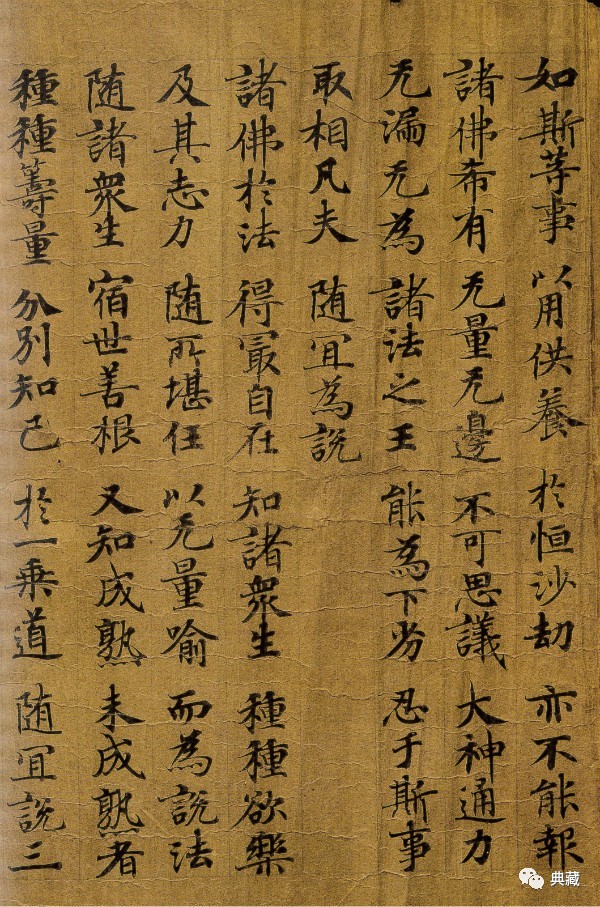 如斯等事 以用供養 於恒沙劫 亦不能報
諸佛希有 无量无邊 不可思議 大神通力
无漏无為 諸法之王 能為下劣 忍于斯事
取相凡夫 随宜為說
諸佛於法 得冣自在 知諸衆生 種種欲樂
及其志力 随所堪任 以无量喻 而為說法
随諸衆生 宿世善根 又知成熟 未成熟者
種種籌量 分別知已 於一乘道 随宜說三
典藏